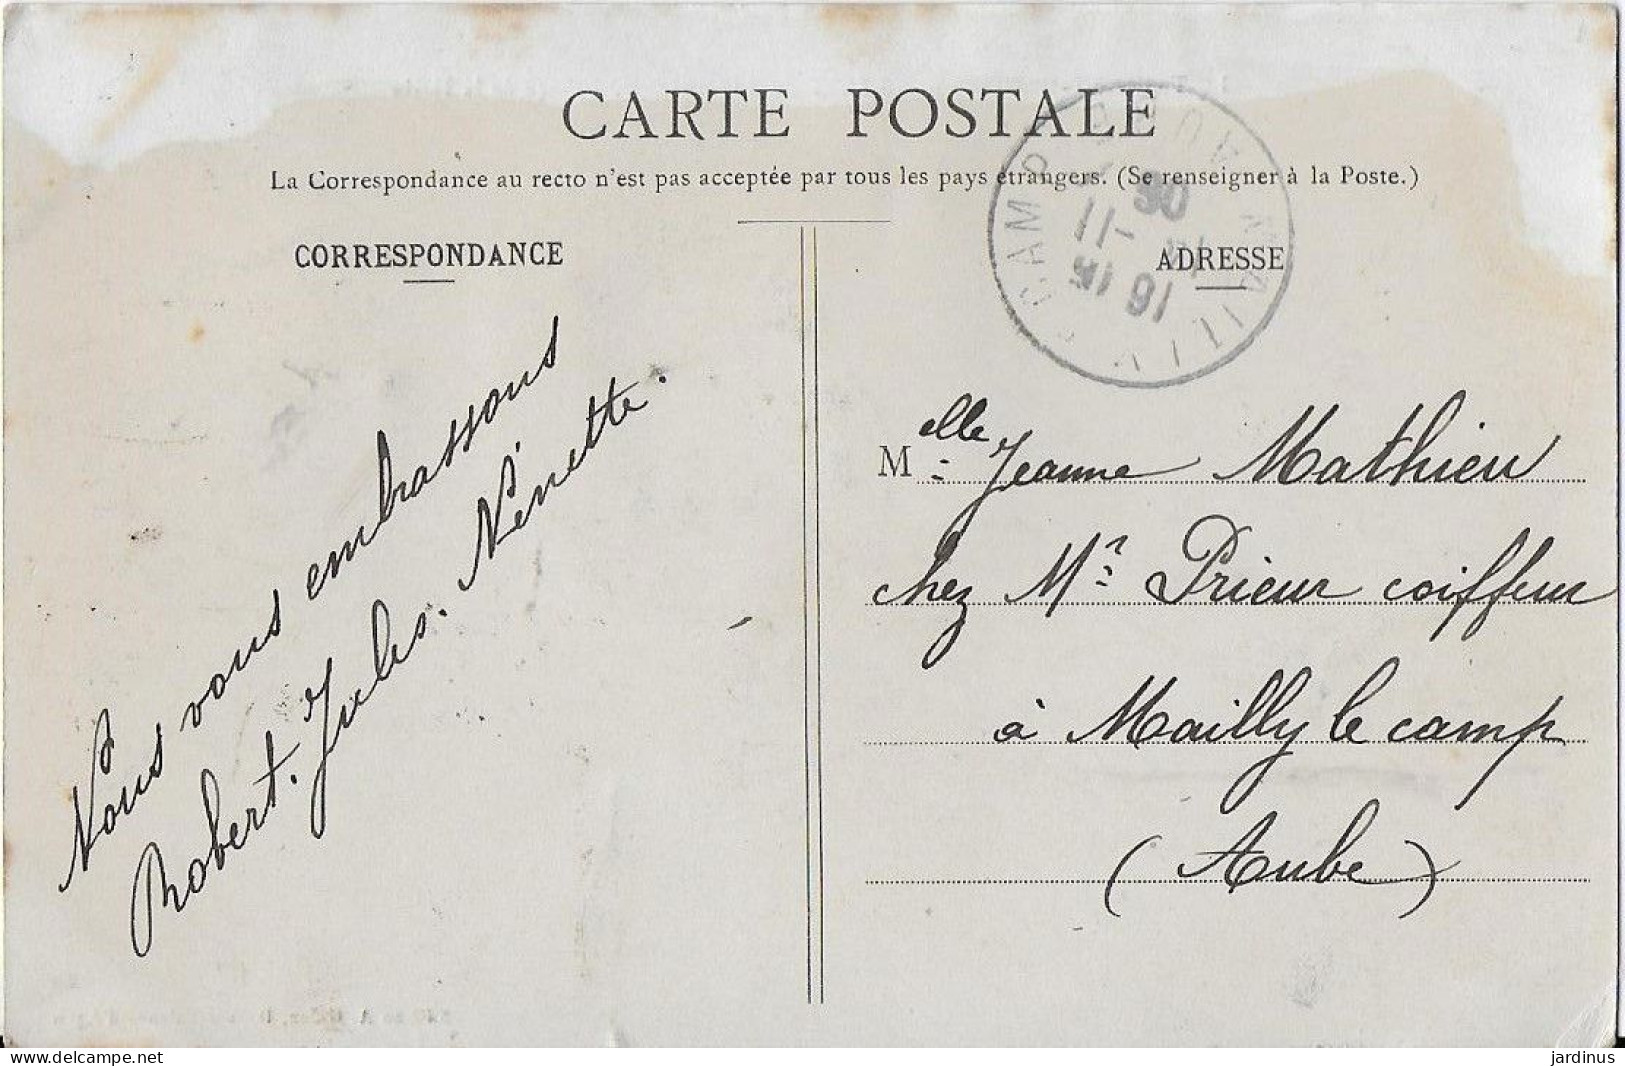 CARTE POSTALE
La Correspondance au recto n'est pas acceptée par tous les pays étrangers. (Se renseigner à la Poste.)
CORRESPONDANCE
Nous vous embrassons
Robert. Jules. Nénette.
ADRESSE
Melle Jeanne Mathieu
chez Mr Prieur coiffeur
à Mailly le camp
(Aube)
CAMP
www.delcampe.net
jardinus